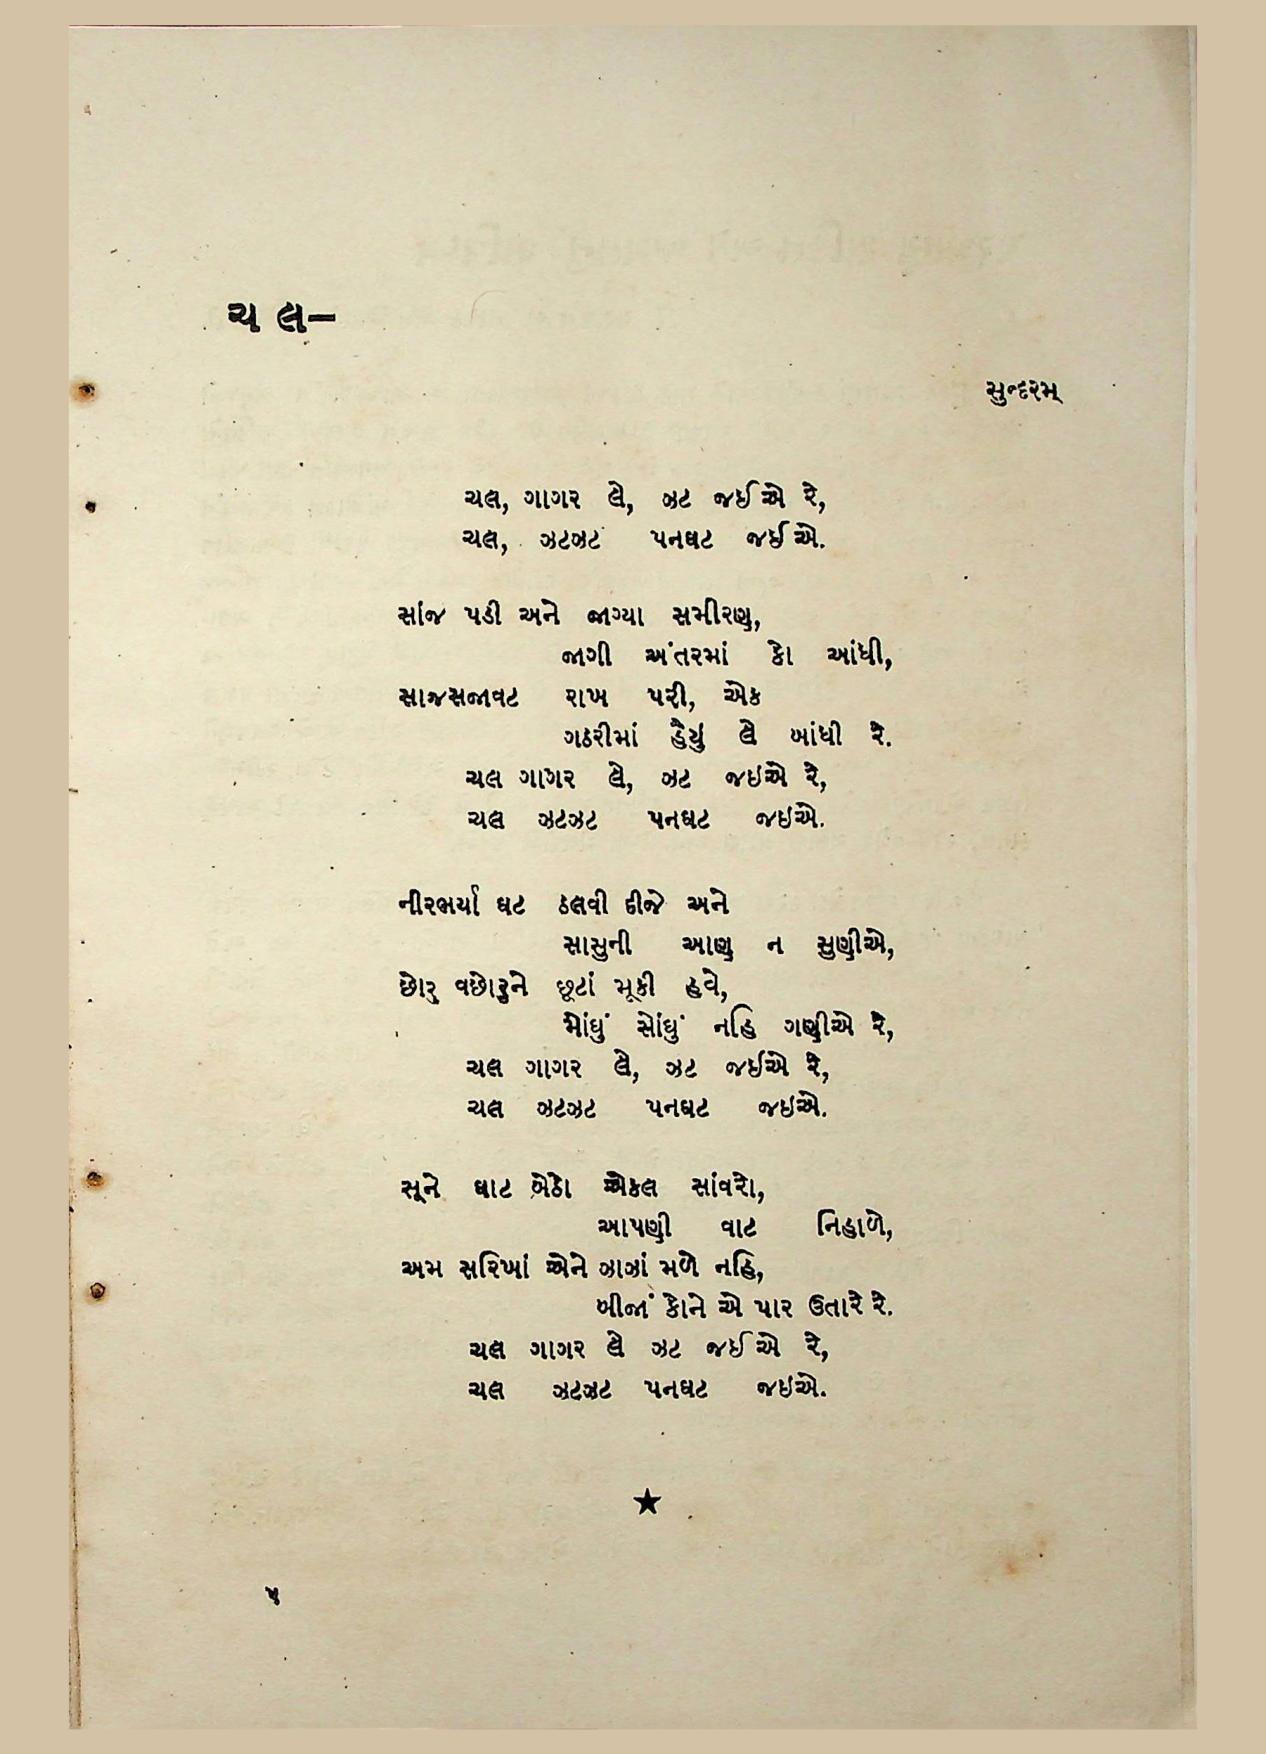 ચ લ–
સુન્દરમ્
ચલ, ગાગર લે, ઝટ જઈએ રે,
ચલ, ઝટઝટ પનઘટ જઈએ.
સાંજ પડી અને જાગ્યા સમીરણ,
જાગી અંતરમાં કો આંધી,
સાજસજાવટ રાખ પરી, એક
ગઠરીમાં હૈયું લે બાંધી રે.
ચલ ગાગર લે, ઝટ જઇએ રે,
ચલ ઝટઝટ પનઘટ જઇએ.
નીરભર્યા ઘટ ઠલવી દીજે અને
સાસુની આણ ન સુણીએ,
છોરુ વછોરુને છૂટાં મૂકી હવે,
મોંઘું સોંઘું નહિ ગણીએ રે,
ચલ ગાગર લે, ઝટ જઈએ રે,
ચલ ઝટઝટ પનઘટ જઇએ.
સૂને ઘાટ બેઠો એકલ સાંવરો,
આપણી વાટ નિહાળે,
અમ સરિખાં એને ઝાઝાં મળે નહિ,
બીજાં કોને એ પાર ઉતારે રે.
ચલ ગાગર લે ઝટ જઈએ રે,
ચલ ઝટઝટ પનઘટ જઇએ.
૫